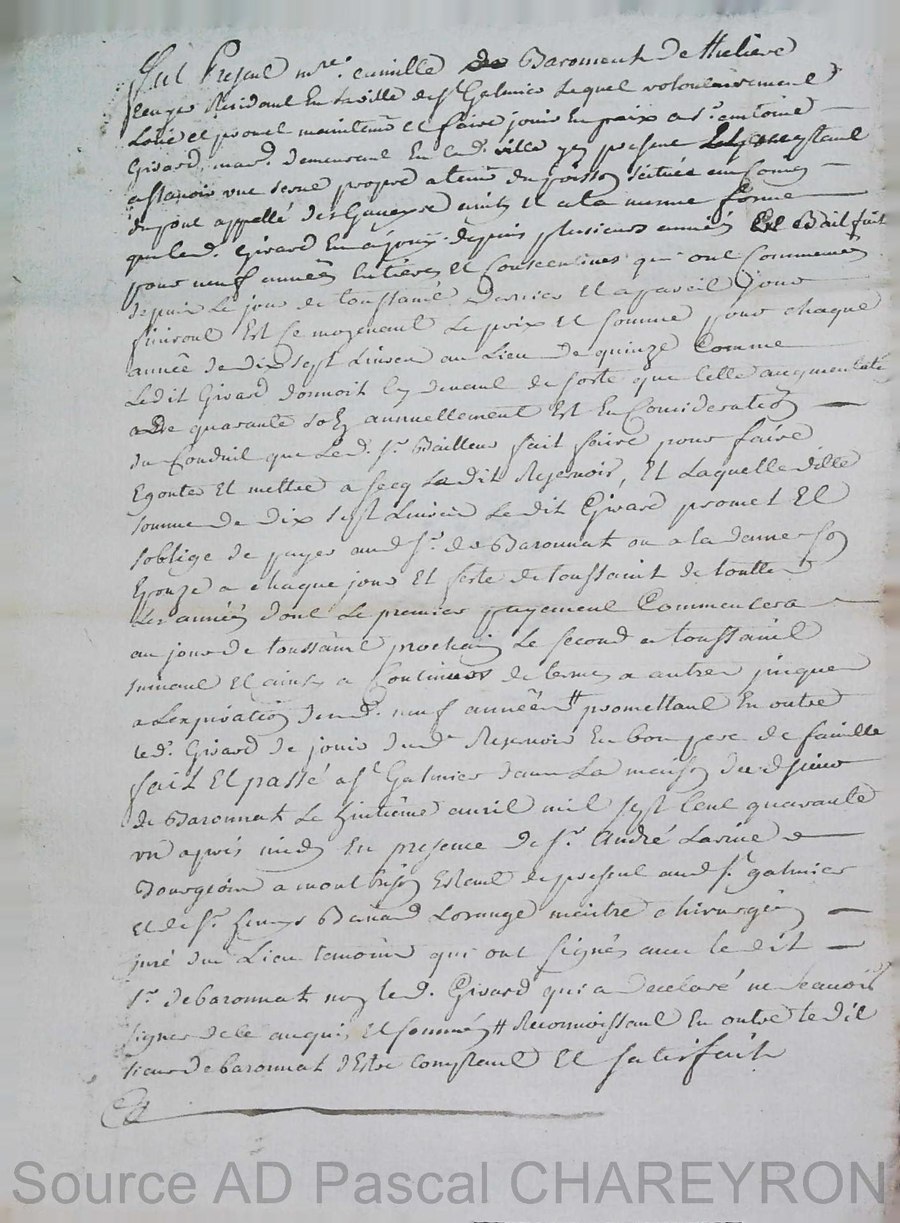 Fut Present mre. camille de Baronnat de theliere
Ecuyer Residant En la ville de st. Galmier Lequel volontairement
Loue et promet maintenir et faire jouir En paix a sr. antoine
Girard mard. demeurant En lad. ville
assavoir une serve propre a tenir du poisson scituée
appellé des et a la meme forme
que led. Girard En a joui depuis plusieurs années Est Bail fait
pour neuf années Entieres Et Consecutives qui ont Commencés
depuis Le jour de toussaint Dernier Et a pareil jour
finiront Est Ce moyenant Le prix Et somme pour chaque
année de dix sept Livres au Lieu de quinze Comme
Ledit Girard donnoit cy devant de sorte que Celle augmentation
de quarante sols annuellement Est En Consideration
du Conduit que Led. sr. Bailleur fait faire pour faire
Egouter Et mettre a secq Le dit Reservoir, Et Laquelle ditte
somme de Dix sept Livres Le dit Girard promet Et
soblige de payer aud sr. de Baronnat ou a la dame son
Epouze a chaque jour Et feste de toussaint de touttes
Les années dont Le premier payement Commencera
au jour de toussaint prochain Le second a toussaint
suivant Et ainsy a Continuer de terme a autres jusques
a Lexpiration desd. neuf années # promettant En outre
led. Girard de jouir dud. Reservoir En bon pere de famille
fait Et passé a st. Galmier dans La maison du d sieur
de Baronnat Le huitième avril mil sept Cent quarante
un après midy En presence de sr. André Larive
Bourgeois a montbrison Estant de present aud st. galmier
et de sr. Lorange maitre chirurgien
juré dud Lieu temoins qui ont signés avec le dit
sr. de baronnat non led. Girard qui a declaré ne scavoir
signer de ce anquis Et sommés # Reconnoissant En outre le dit
sieur de baronnat dEstre Comptant Et satisfait
Source AD Pascal CHAREYRON